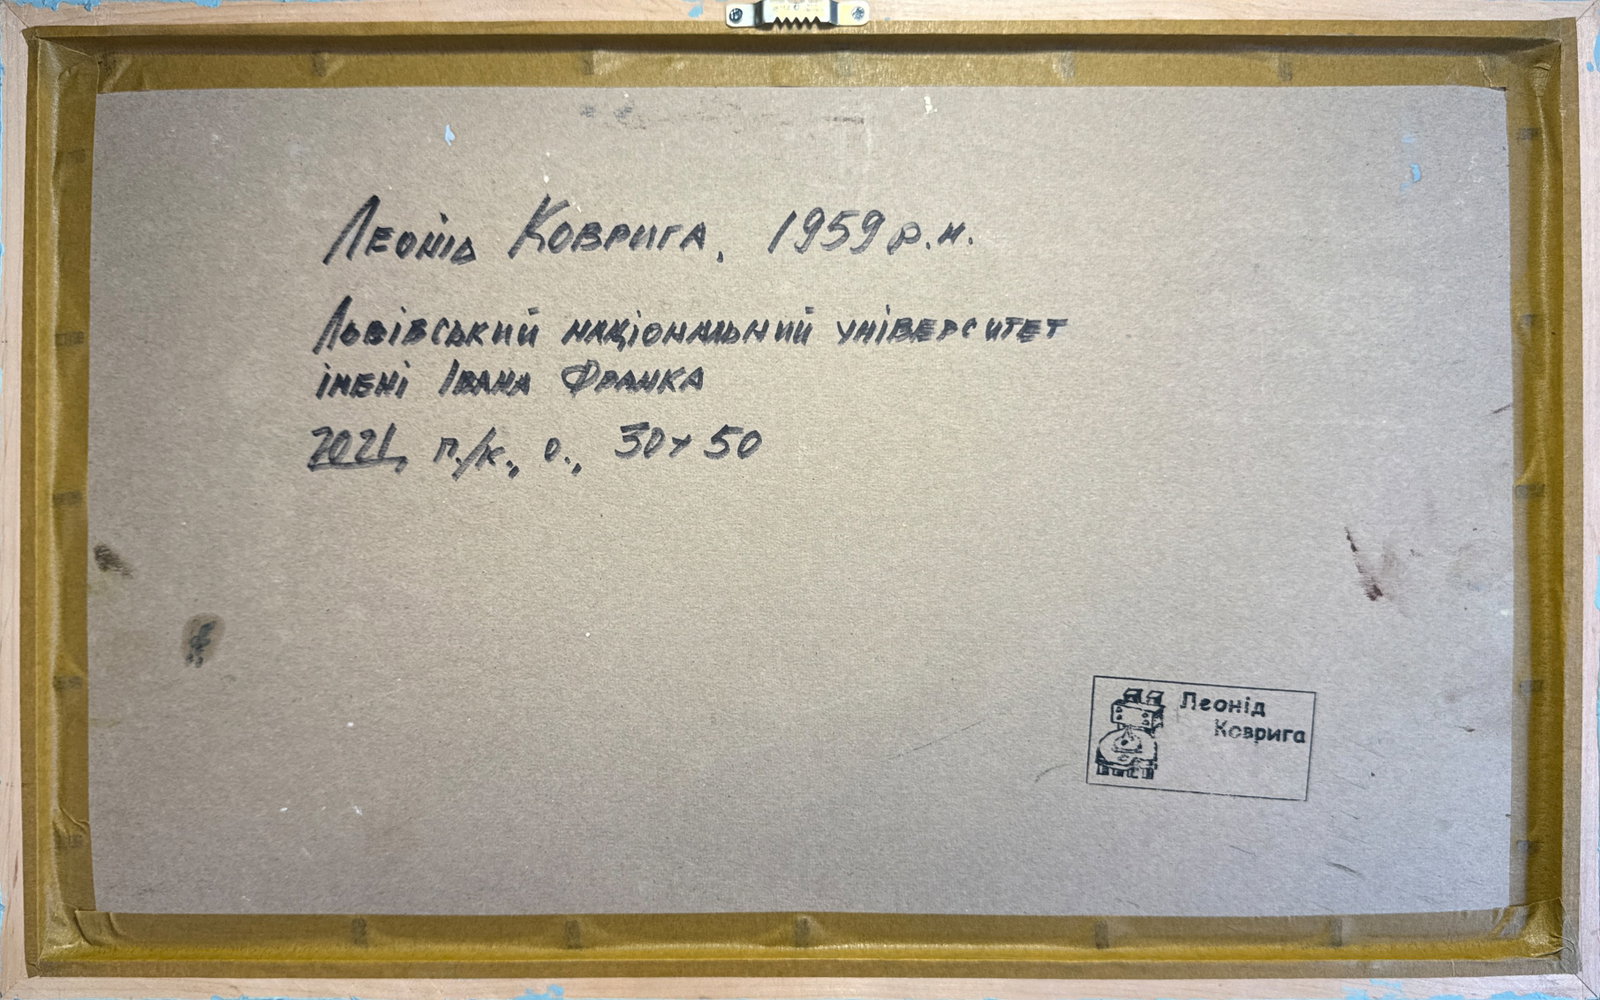 Леонід Коврига, 1959 р.н.
Львівський національний університет
імені Івана Франка
2021, п./к., о., 30х50
Леонід
Коврига